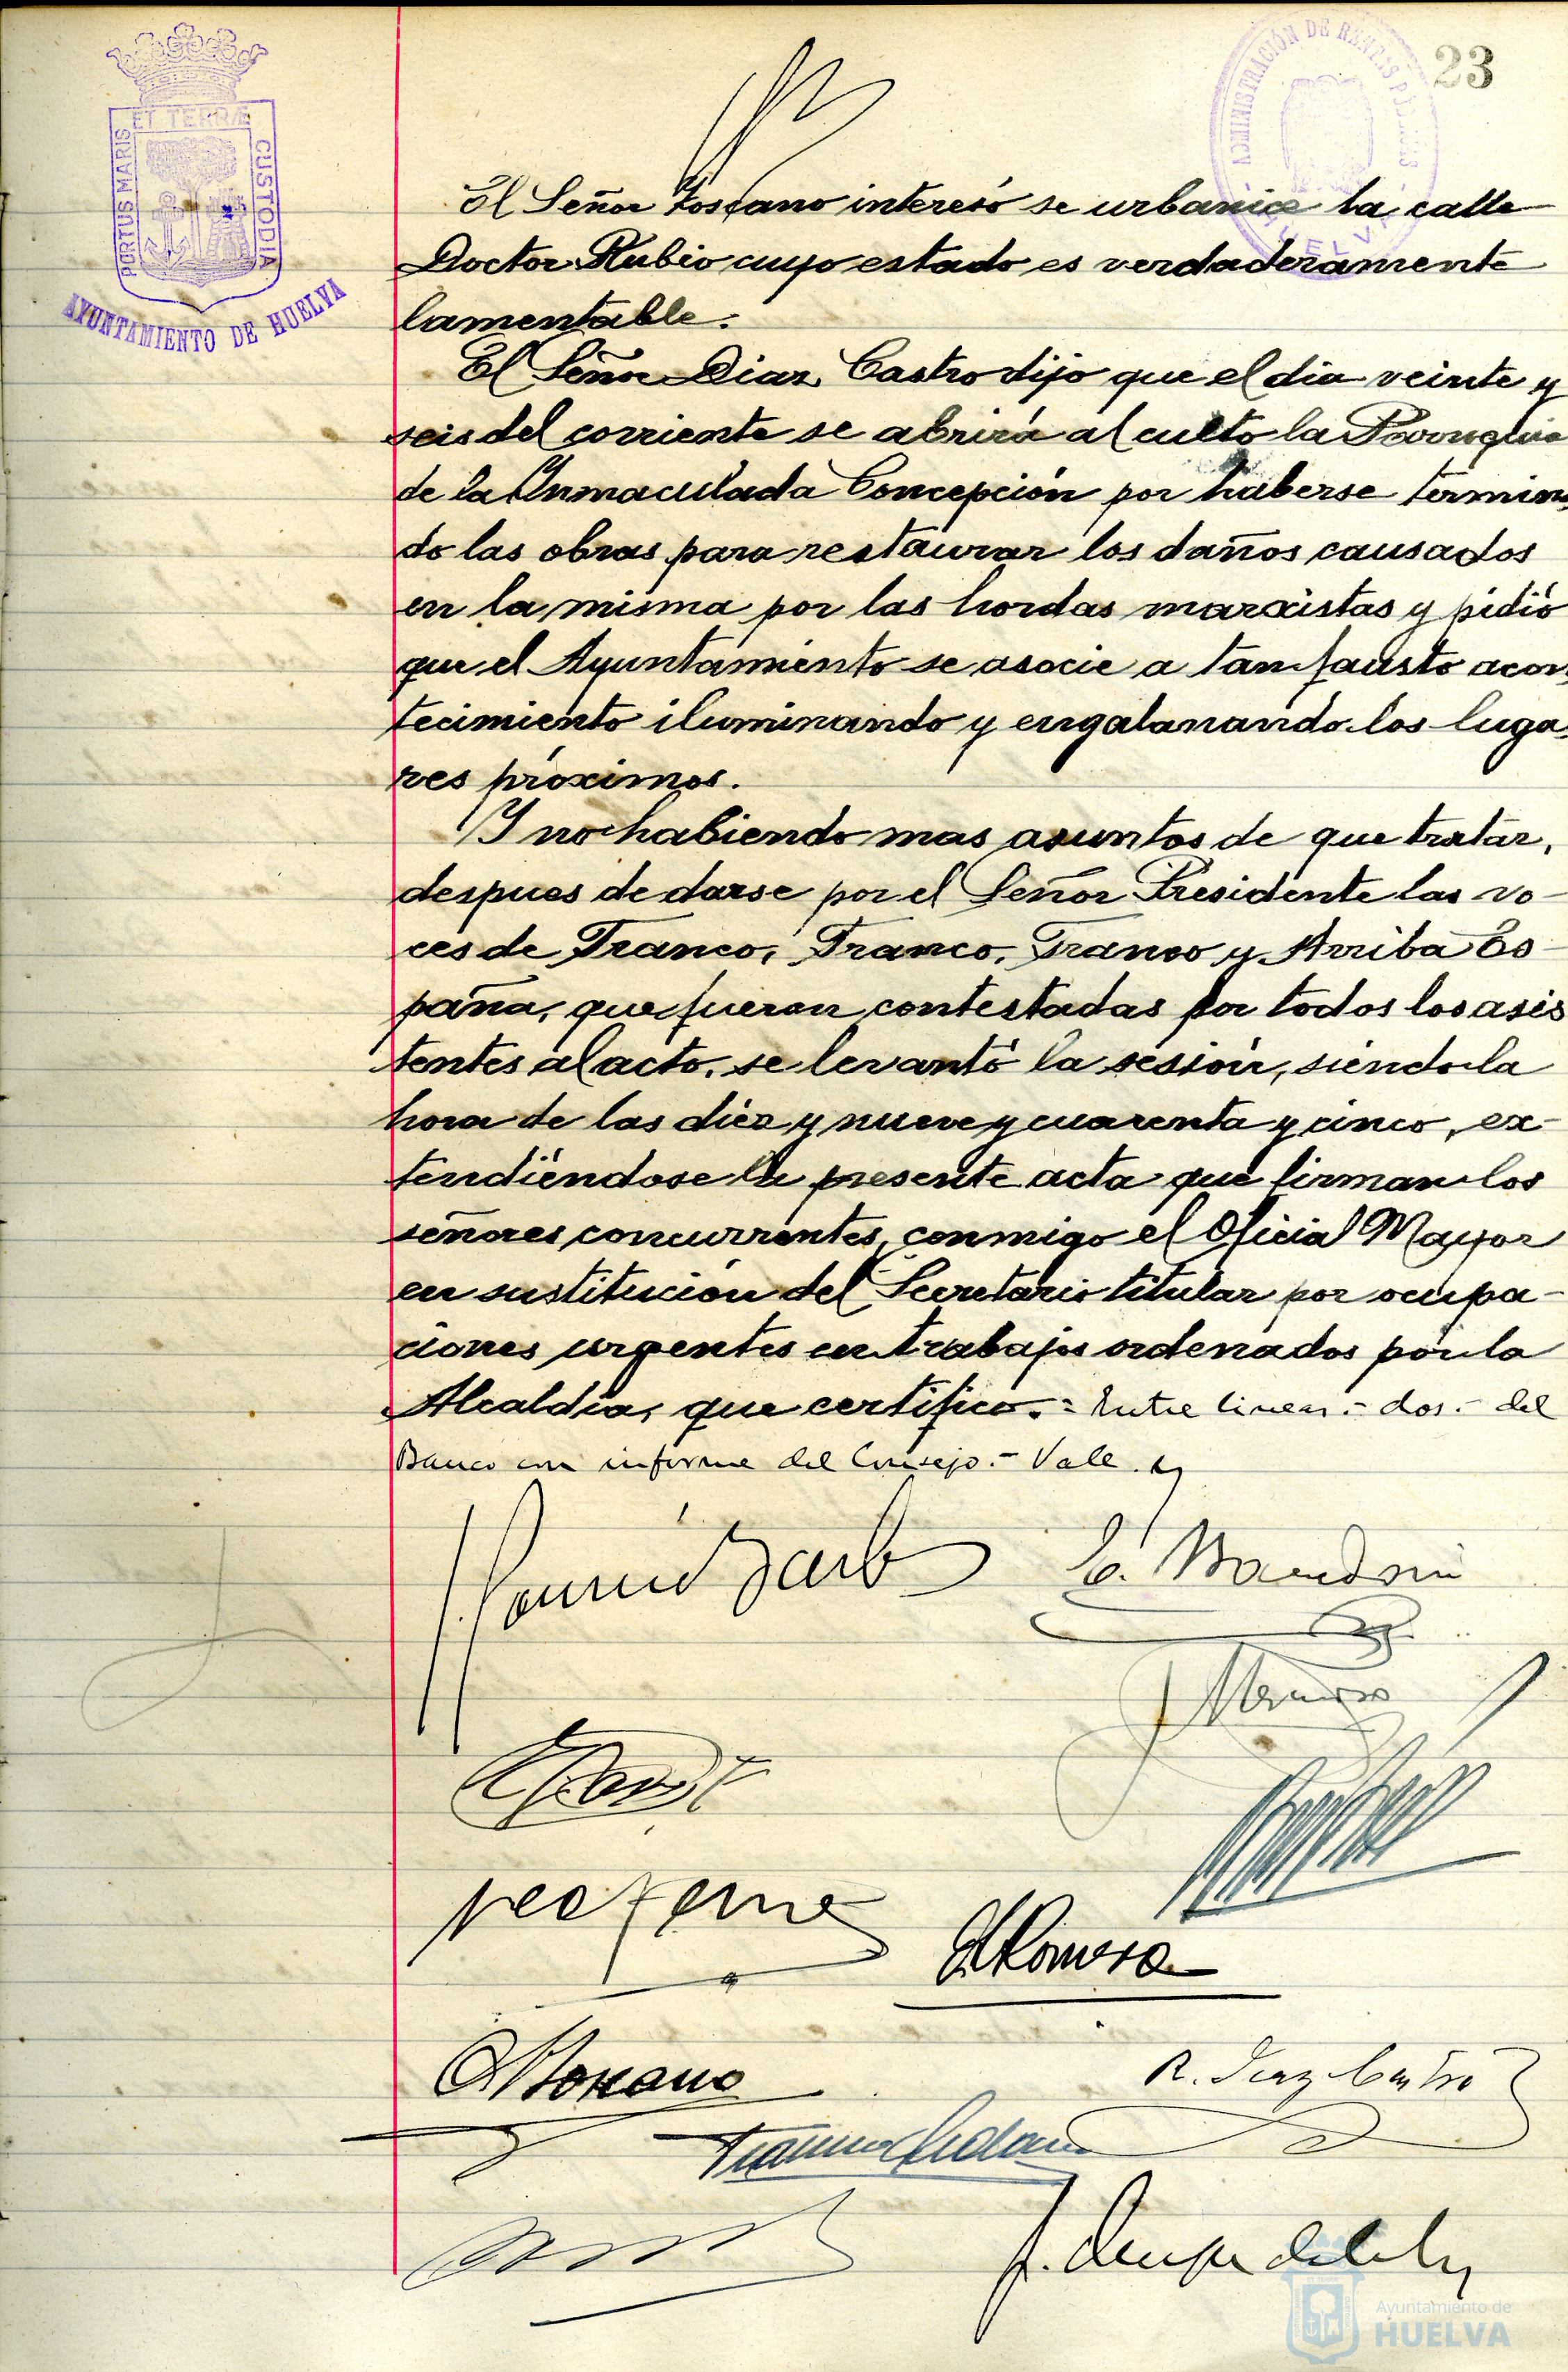 23
ADMINISTRACIÓN DE RENTAS PÚBLICAS
HUELVA
PORTUS MARIS ET TERRÆ CUSTODIA
AYUNTAMIENTO DE HUELVA
El Señor Toscano interesó se urbanice la calle
Doctor Rubio cuyo estado es verdaderamente
lamentable.
El Señor Diaz Castro dijo que el dia veinte y
seis del corriente se abrirá al culto la Parroquia
de la Inmaculada Concepción por haberse termina
do las obras para restaurar los daños causados
en la misma por las hordas marxistas y pidió
que el Ayuntamiento se asocie a tan fausto acon
tecimiento iluminando y engalanando los luga
res próximos.
Y no habiendo mas asuntos de que tratar,
despues de darse por el Señor Presidente las vo-
ces de Franco, Franco, Franco y Arriba Es-
paña, que fueron contestadas por todos los asis
tentes al acto, se levantó la sesión, siendo la
hora de las diez y nueve y cuarenta y cinco, ex-
tendiéndose la presente acta que firman los
señores concurrentes, conmigo el Oficial Mayor
en sustitución del Secretario titular por ocupa-
ciones urgentes en trabajos ordenados por la
Alcaldía, que certifico. = Entre lineas.- dos.- del
Banco con informe del Consejo.- Vale.
A Romero
Toscano
R. Diaz Castro
Ayuntamiento de
HUELVA